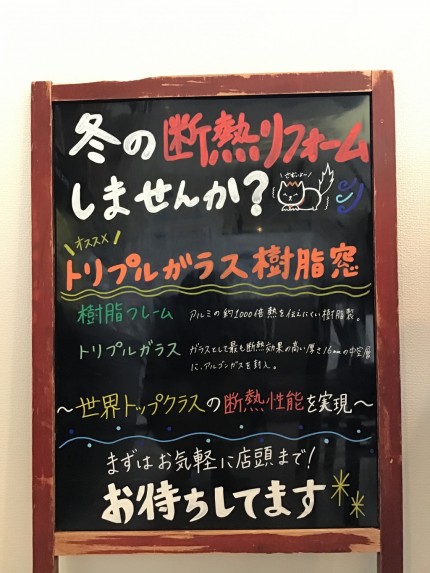 冬の断熱リフォーム
しませんか?
さむいよー
オススメ
トリプルガラス樹脂窓
樹脂フレーム アルミの約1000倍熱を伝えにくい樹脂製。
トリプルガラス ガラスとして最も断熱効果の高い厚さ16mmの中空層
に、アルゴンガスを封入。
~世界トップクラスの断熱性能を実現~
まずはお気軽に店頭まで!
お待ちしてます